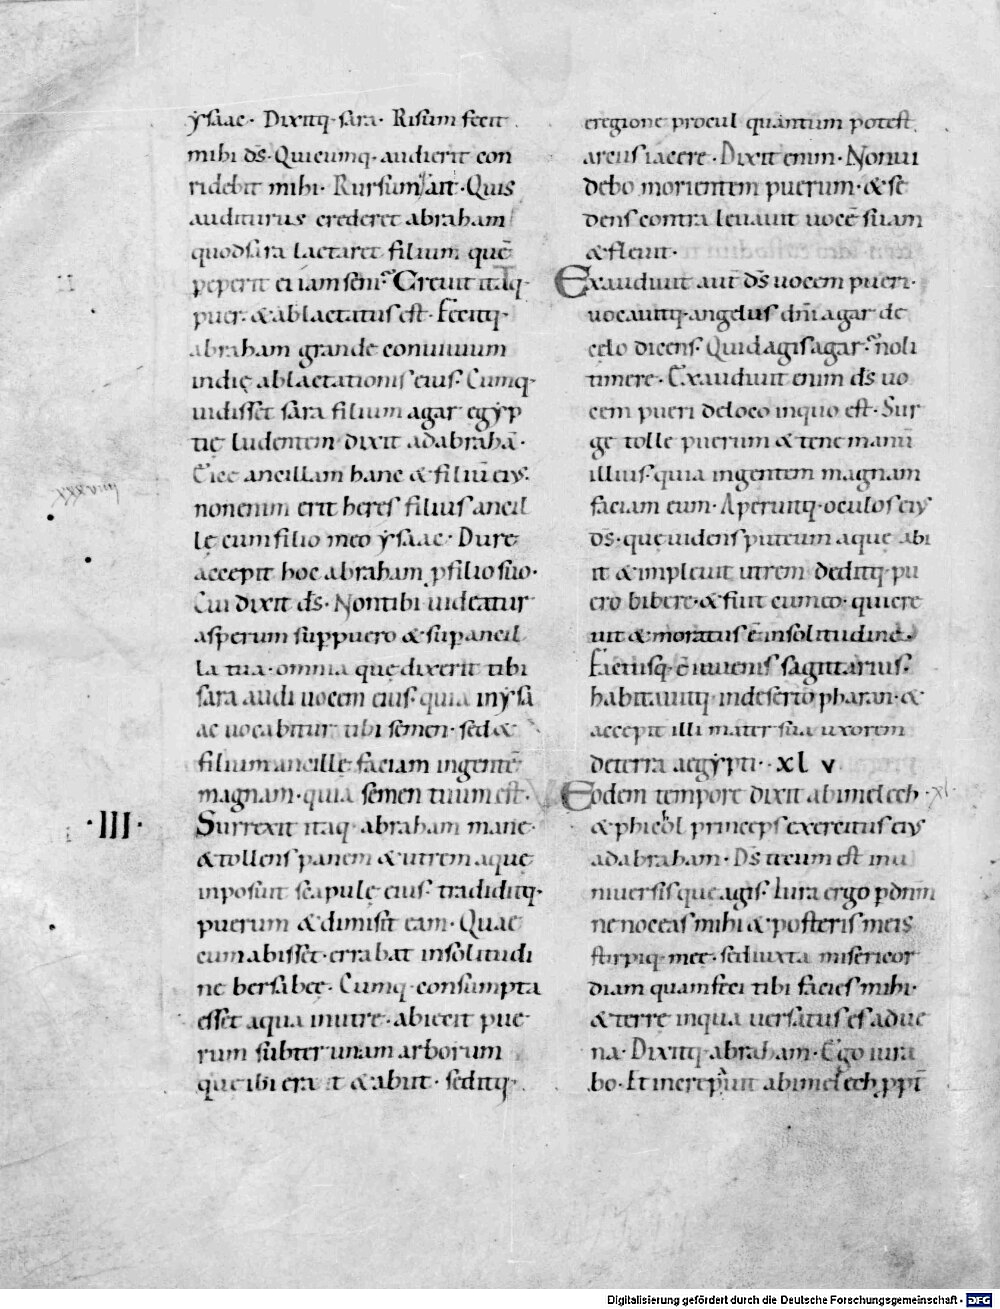 ẏsaac· Dixitq· sara· Risum fecit
mihi ds̄· Quicumq· audierit con
ridebit mihi· Rursum ait· Quis
auditurus crederet abraham
quod sara lactaret filium quē
peperit ei iam seni· Creuit itaq·
puer· & ablactatus est· Fecitq·
abraham grande conuiuium
in die ablactationis eius· Cumq·
uidisset sara filium agar egẏp
tię ludentem dixit ad abrahā·
Eice ancillam hanc & filiū eius·
non enim erit heres filius ancil
lę cum filio meo ẏsaac· Dure
accepit hoc abraham p filio suo·
Cui dixit ds̄· Non tibi uideatur
asperum sup puero & sup ancil
la tua· omnia quę dixerit tibi
sara audi uocem eius· quia in ẏsa
ac uocabitur tibi semen· sed &
filium ancillę faciam in gentē
magnam· quia semen tuum est·
·III· Surrexit itaq· abraham mane·
& tollens panem & utrem aquę
inposuit scapulę eius· tradiditq·
puerum & dimisit eam· Quae
cum abisset· errabat in solitudi
ne bersabee· Cumq· consumpta
esset aqua in utre· abiecit pue
rum subter unam arborum
quę ibi erant & abiit· seditq·
e regione procul quantum potest
arcus iacere· Dixit enim· Non ui
debo morientem puerum· & se
dens contra leuauit uocē suam
& fleuit·
Exaudiuit aut̄ ds̄ uocem pueri·
uocauitq· angelus dn̄i agar de
cęlo dicens· Quid agis agar· noli
timere· Exaudiuit enim ds̄ uo
cem pueri de loco in quo est· Sur
ge tolle puerum & tene manū
illius· quia in gentem magnam
faciam eum· Aperuitq· oculos eius
ds̄· quę uidens puteum aquę abi
it & impleuit utrem deditq· pu
ero bibere· & fuit cum eo· qui cre
uit & moratus ē in solitudine·
Factusq· ē iuuenis sagittarius·
habitauitq· in deserto pharan· &
accepit illi mater sua uxorem
de terra aegẏpti· xl v
Eodem tempore dixit abimelech· xl·
& phicol princeps exercitus eius
ad abraham· Ds̄ tecum est in u
niuersis quę agis· Iura ergo p dn̄m
ne noceas mihi & posteris meis
stirpiq· męę· sed iuxta misericor
diam quam feci tibi facies mihi·
& terrę in qua uersatus es adue
na· Dixitq· abraham· Ego iura
bo· Et increpauit abimelech ppt̄
Digitalisierung gefördert durch die Deutsche Forschungsgemeinschaft - DFG